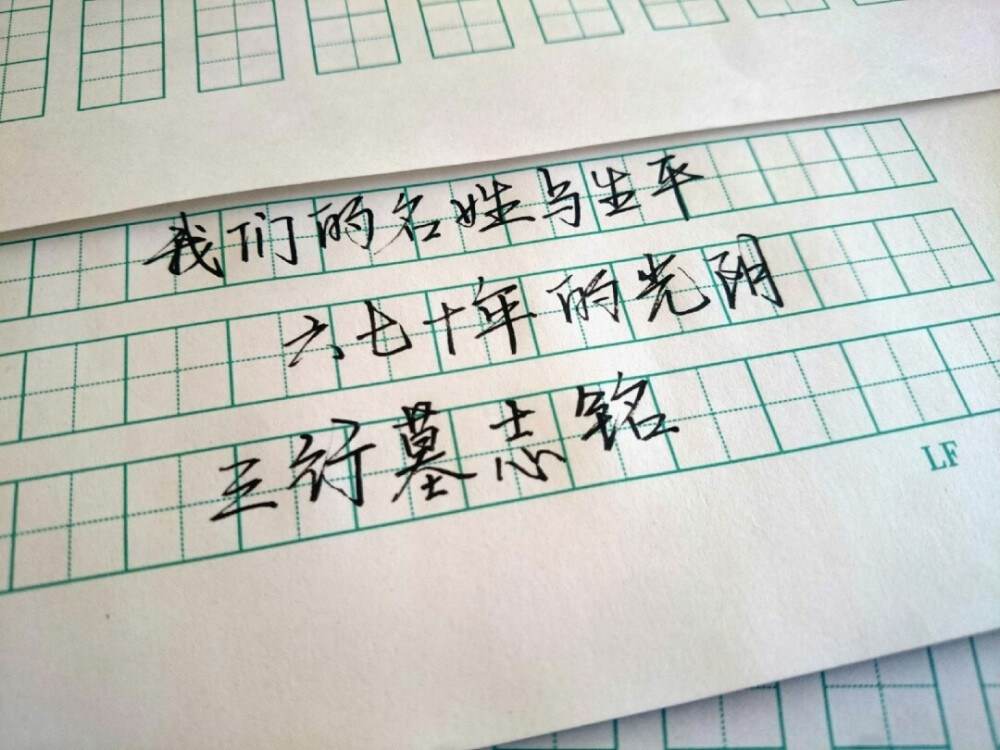 我们的名姓与生平
六七十年的光阴
三行墓志铭
LF